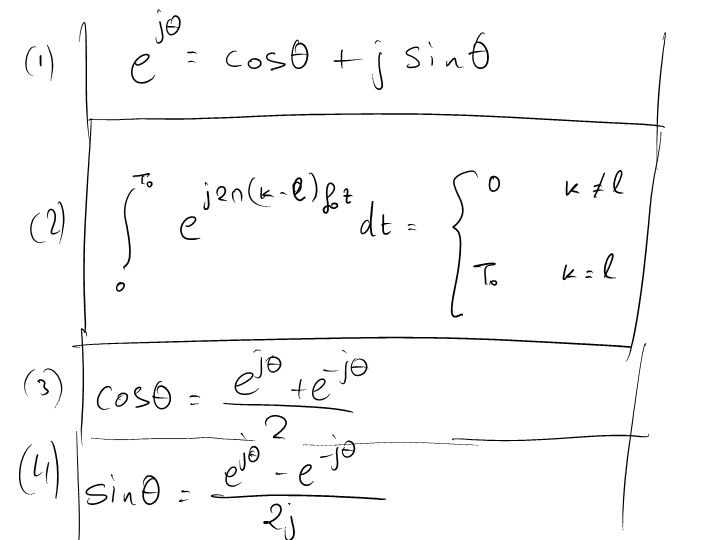 (1) e^{jθ} = cosθ + j sinθ
(2) ∫_0^{T₀} e^{j2π(k-l)f₀t} dt = { 0 k≠l
T₀ k=l
(3) cosθ = (e^{jθ} + e^{-jθ})/2
(4) sinθ = (e^{jθ} - e^{-jθ})/2j